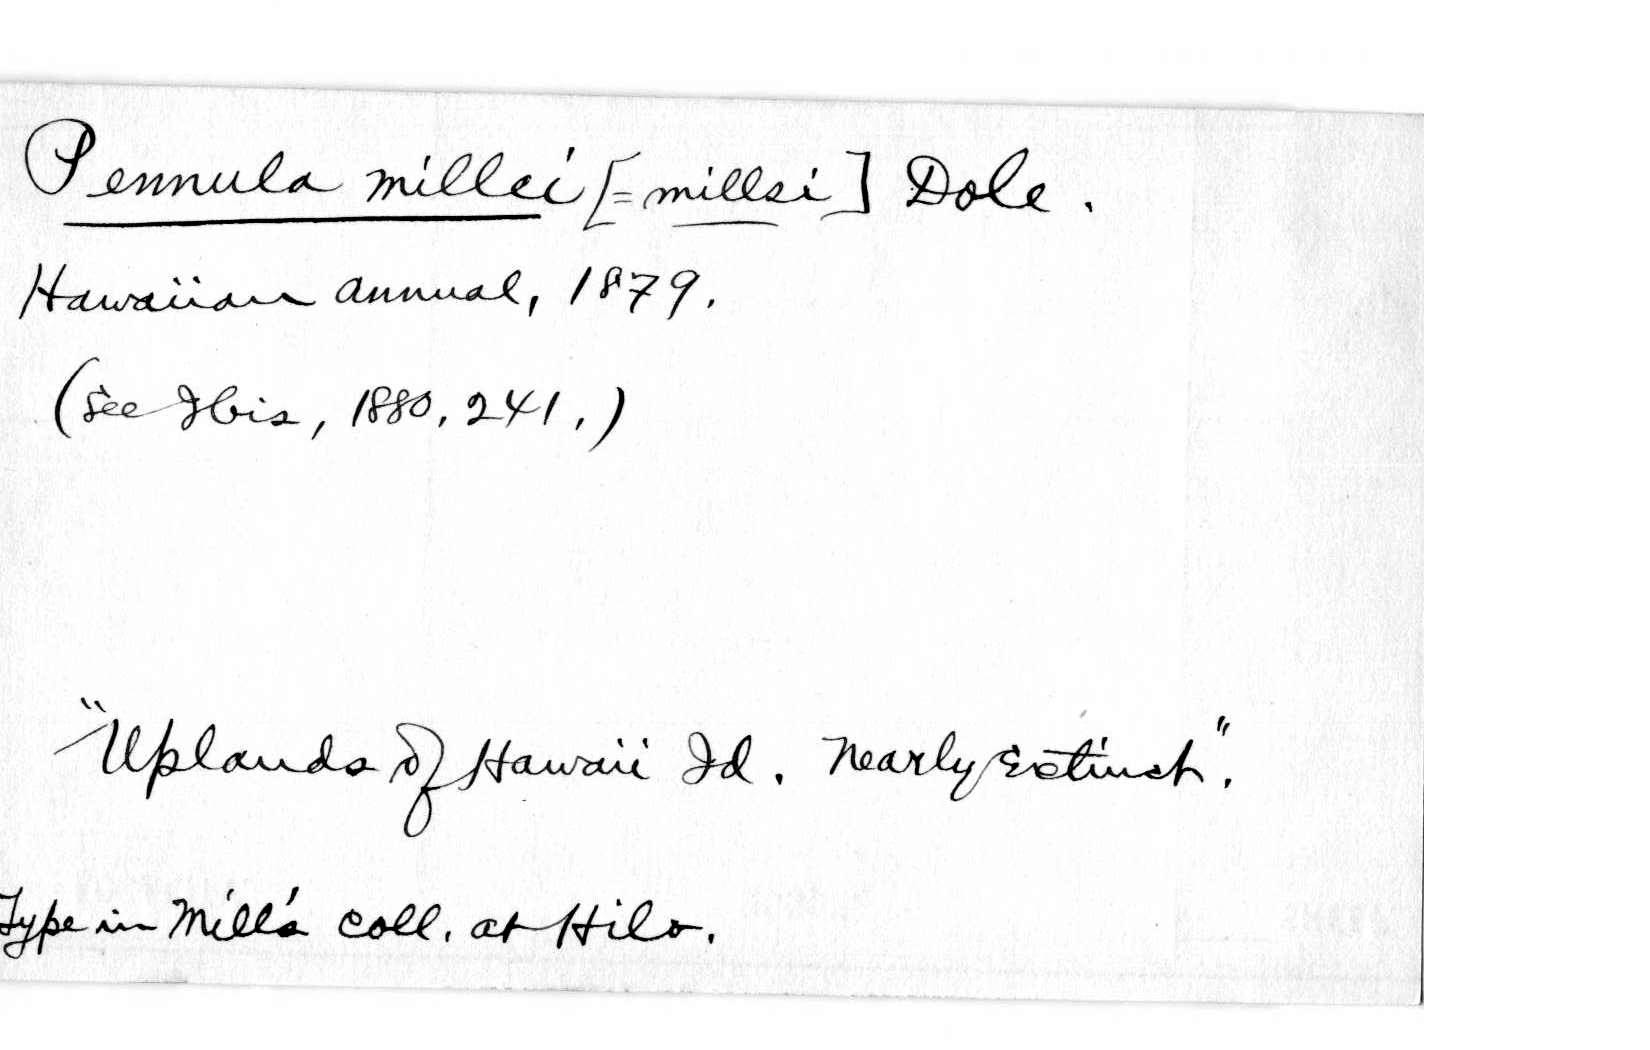 Pennula millei [= millsi] Dole.
Hawaiian Annual, 1879.
(See Ibis, 1880, 241.)
"Uplands of Hawaii Id. Nearly Extinct".
Type in Mill's coll. at Hilo.